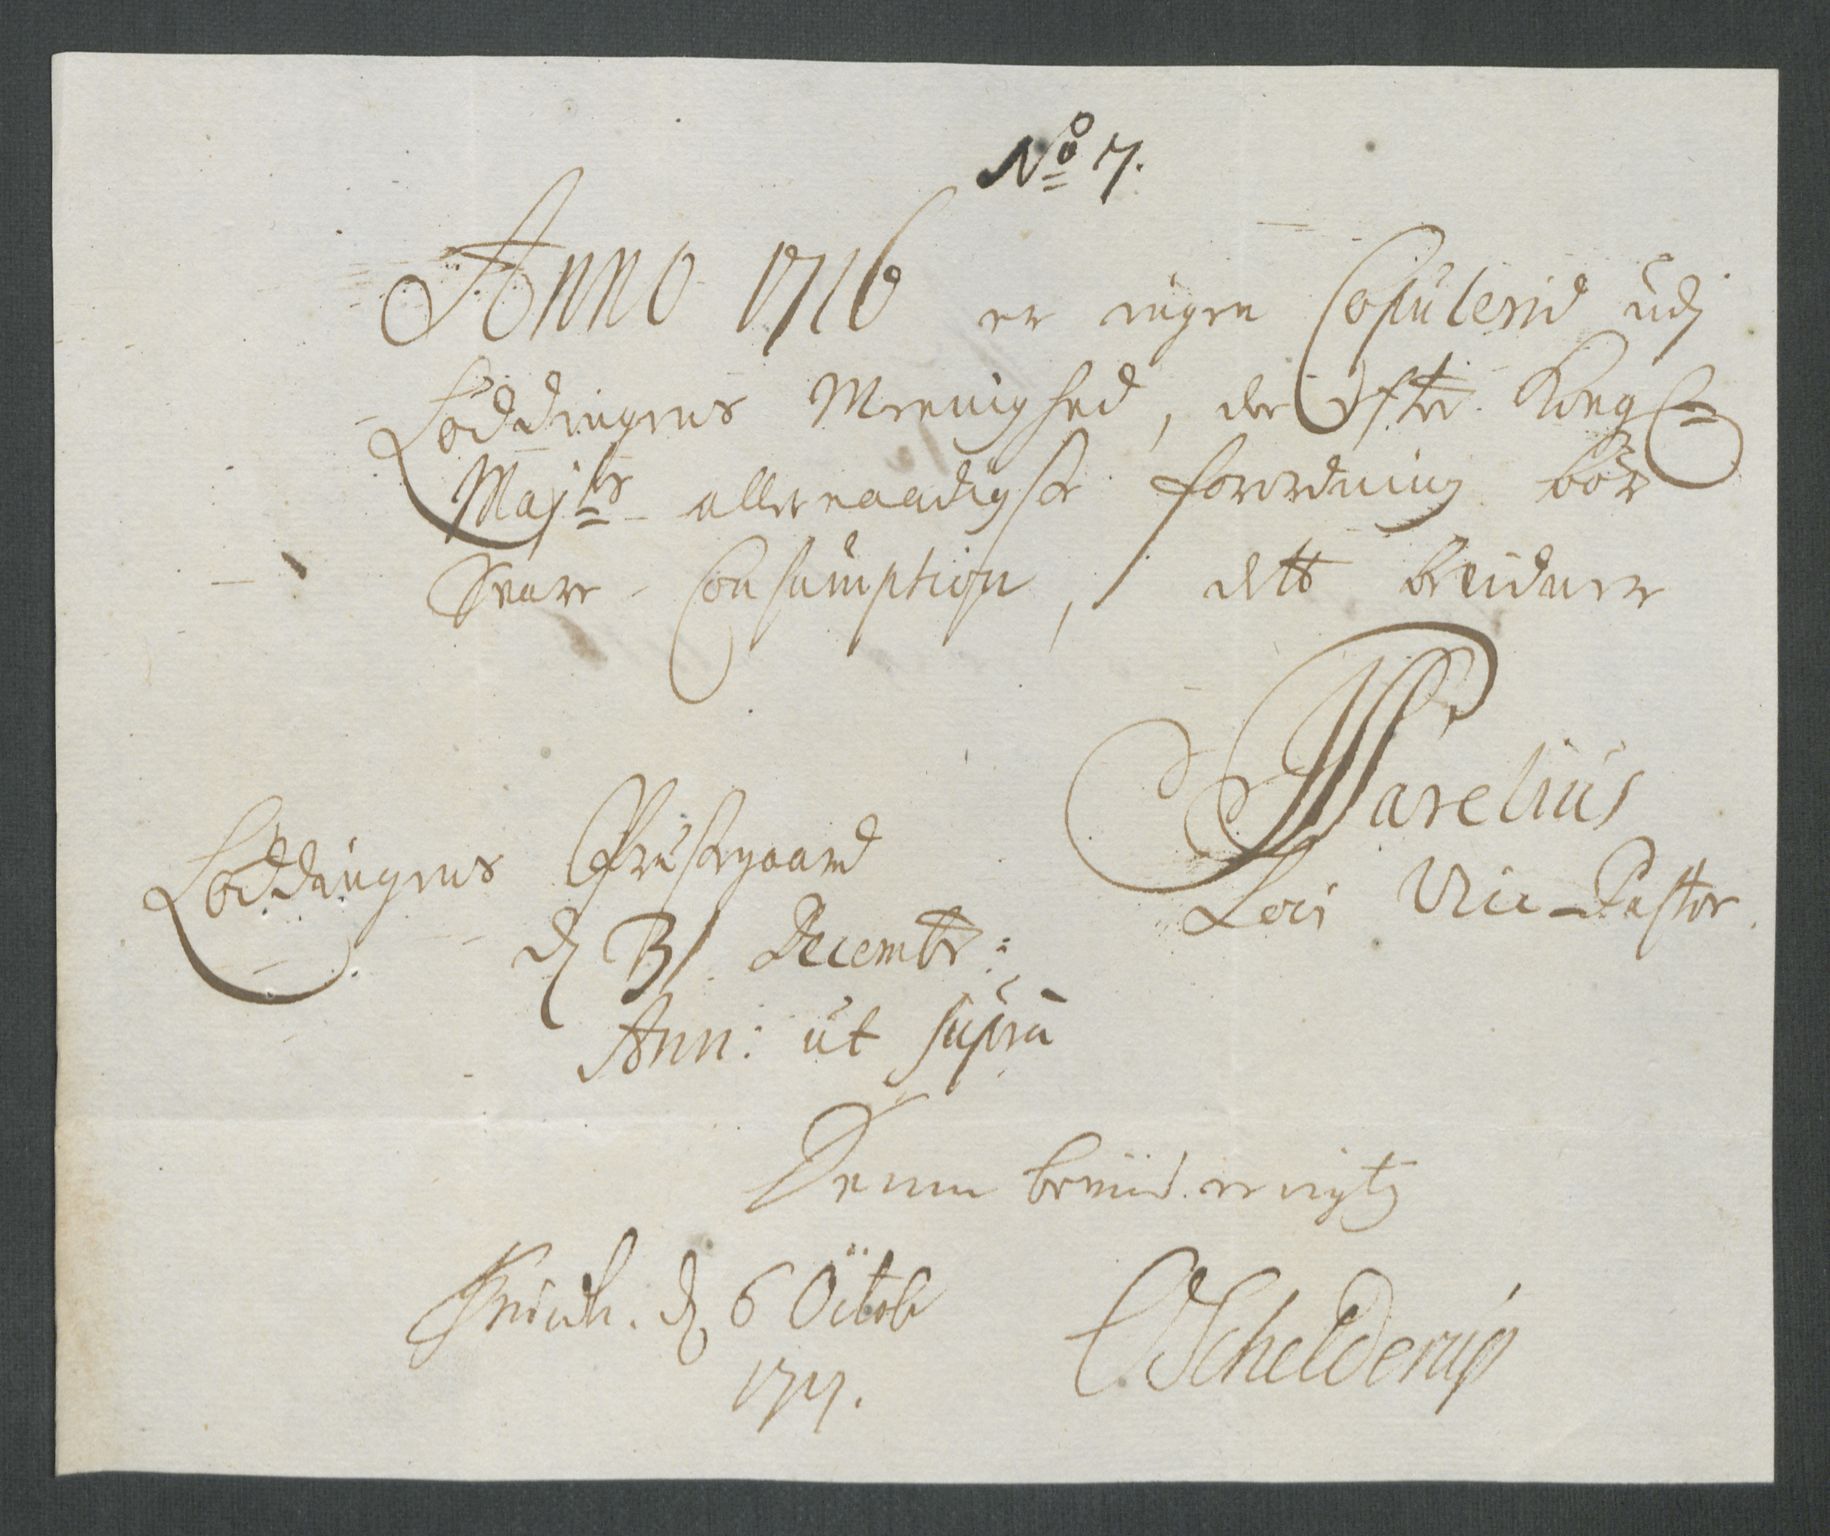 No 7.
Anno 1716 er ingen Copulerid udj
Løddingens Meenighed, der Efter Kongl
Majts allernaadigste forordning bør
Svare Consumption, dette bevidner
Parelius
Loci Vice-Pastor
Løddingens Præstegaard
d 31 Decembr:
Ann: ut supra
Denne beviis er rigtig
d 6 Octob
1717.
Schelderup